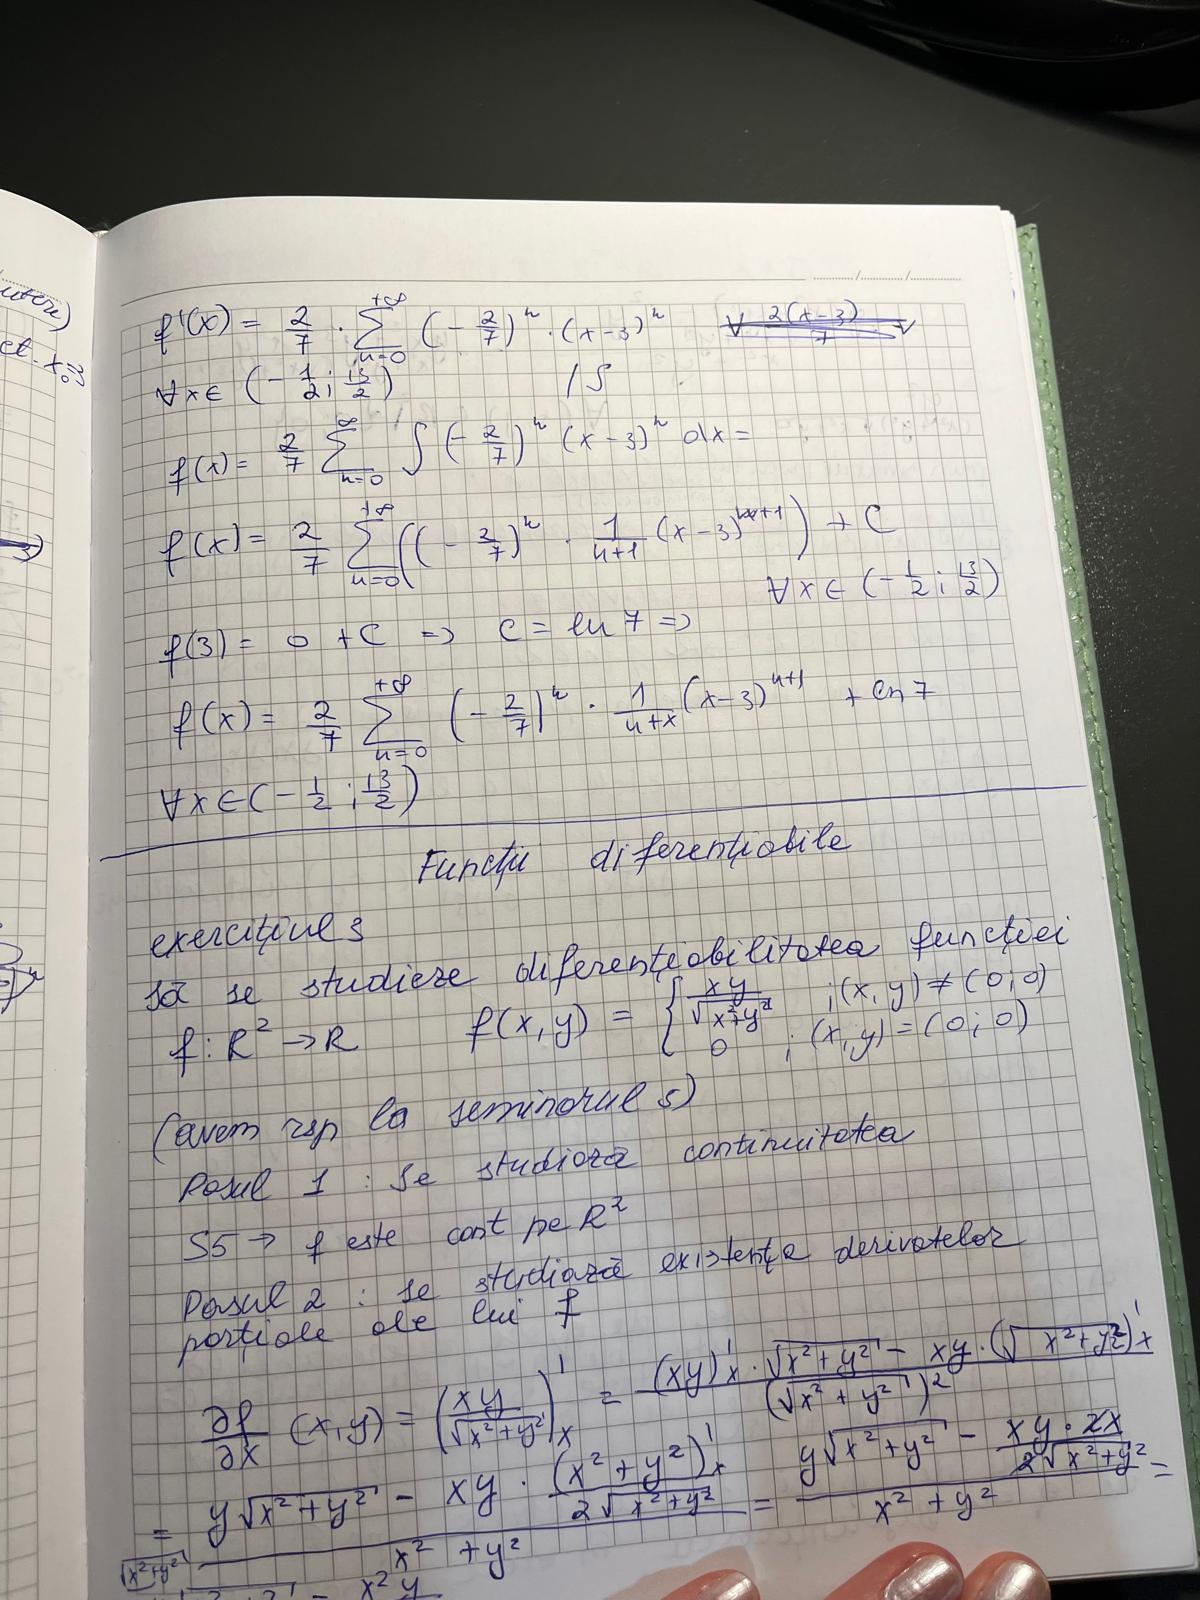 utere)
ct. x₀=3
f'(x) = 2/7 · ∑_{n=0}^{+∞} (-2/7)^n · (x-3)^n
∀x∈ (-1/2 ; 13/2) /∫
f(x) = 2/7 ∑_{n=0}^{∞} ∫ (-2/7)^n (x-3)^n dx =
f(x) = 2/7 ∑_{n=0}^{+∞} ((-2/7)^n · 1/(n+1) (x-3)^{n+1}) + C
∀x∈ (-1/2 ; 13/2)
f(3) = 0 + C => C = ln 7 =>
f(x) = 2/7 ∑_{n=0}^{+∞} (-2/7)^n · 1/(n+x) (x-3)^{n+1} + ln 7
∀x∈(-1/2 ; 13/2)
Funcții diferențiabile
exercițiul 3
să se studieze diferențiabilitatea funcției
f : R² → R f(x,y) = { xy/√(x²+y²) ; (x,y) ≠ (0;0)
0 ; (x,y) = (0;0)
(avem rsp la seminarul 5)
Pasul 1 : Se studiază continuitatea
S5 → f este cont pe R²
Pasul 2 : se studiază existența derivatelor
parțiale ale lui f
∂f/∂x (x,y) = (xy/√(x²+y²))'_x = ((xy)'_x · √(x²+y²) - xy · (√(x²+y²))'_x)/(√(x²+y²))²
= (y√(x²+y²) - xy · (x²+y²)'_x/(2√(x²+y²)))/(x²+y²) = (y√(x²+y²) - xy·2x/(2√(x²+y²)))/(x²+y²) =
√(x²+y²)
- x²y